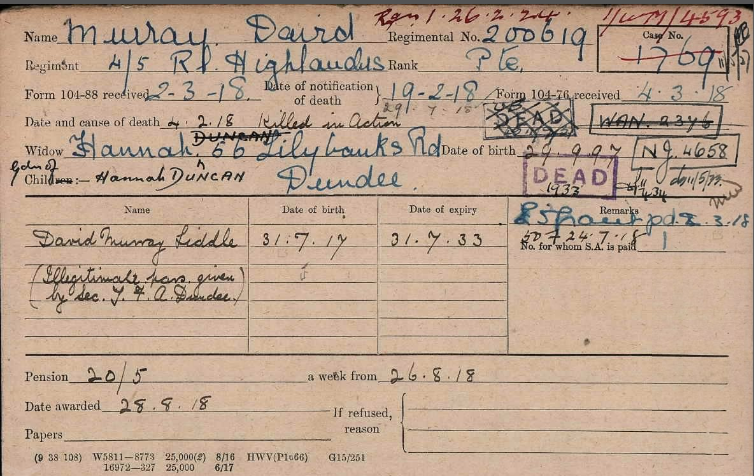 Rgn 1. 26.2.24. 11/M/4593
Name Murray. David Regimental No. 200619 Case No. 1769
Regiment 4/5 Rl. Highlanders Rank Pte.
Form 104-88 received 2-3-18. Date of notification of death 19-2-18 Form 104-76 received 4.3.18
29 . 7 . 18
Date and cause of death 4.2.18 Killed in Action DEAD WAN. 2376
DUNCAN
Widow Hannah, 66 Lilybanks Rd Date of birth 29.9.97 NJ. 4658
Gdn of
Children:— Hannah DUNCAN Dundee. DEAD
1933
Name Date of birth Date of expiry Remarks
£5 grant pd. 8.3.18
David Murray Liddle 31.7.17 31.7.33 No. for whom S.A. is paid 1
24.7.18
(Illegitimate pars. given
by sec. T. F. A. Dundee.)
Pension 20/5 a week from 26.8.18
Date awarded 28.8.18 If refused, reason
Papers
(9 38 108) W5811—8773 25,000(2) 8/16 HWV(P1066) G15/251
16972—327 25,000 6/17